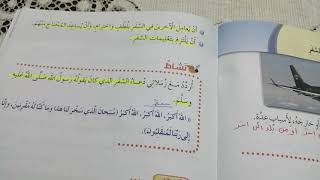 أن يعامل الآخرين في السفر بلطف واحترام، وأن يساعد المحتاج منهم.
أن يلتزم بتعليمات السفر.
نشاط
أردد مع زملائي دعاء السفر الذي كان يقوله رسول الله صلى الله عليه
وسلم:
الله أكبر، الله أكبر، الله أكبر (سبحان الذي سخر لنا هذا وما كنا له مقرنين، وإنا
إلى ربنا لمنقلبون).
خارجه لأسباب عدة.